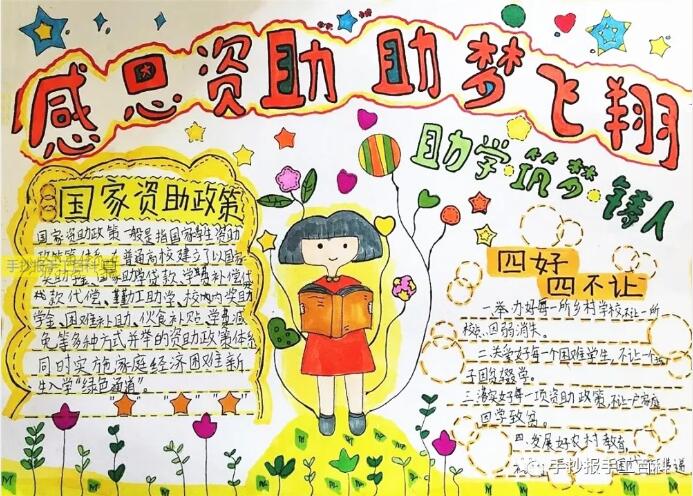 感恩资助 助梦飞翔
助学·筑梦·铸人
国家资助政策
国家资助政策一般是指国家学生资助
普通高校建立了以国家
国家助学贷款、学费补偿贷
款代偿、勤工助学、校内奖助
学金、困难补助、伙食补贴、学费减
免等多种方式并举的资助政策体系
同时实施家庭经济困难新
生入学"绿色通道"。
四好
四不让
一.举办好每一所乡村学校,不让一所
校因弱消失。
二.关爱好每一个困难学生,不让一个孩
子因贫辍学。
三.落实好每一项资助政策,不让一户家庭
因学致贫。
四.发展好农村教育,
手抄报手工百科